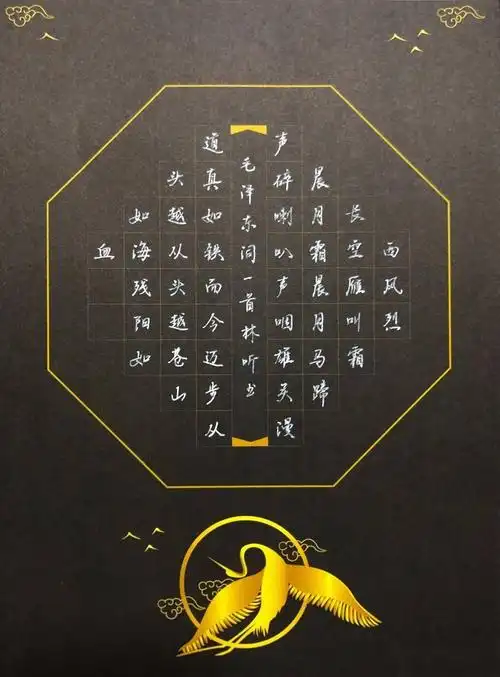 西风烈
长空雁叫霜
晨月霜晨月马蹄
声碎喇叭声咽雄关漫
毛泽东词一首林听书
道真如铁而今迈步从
头越从头越苍山
如海残阳如
血